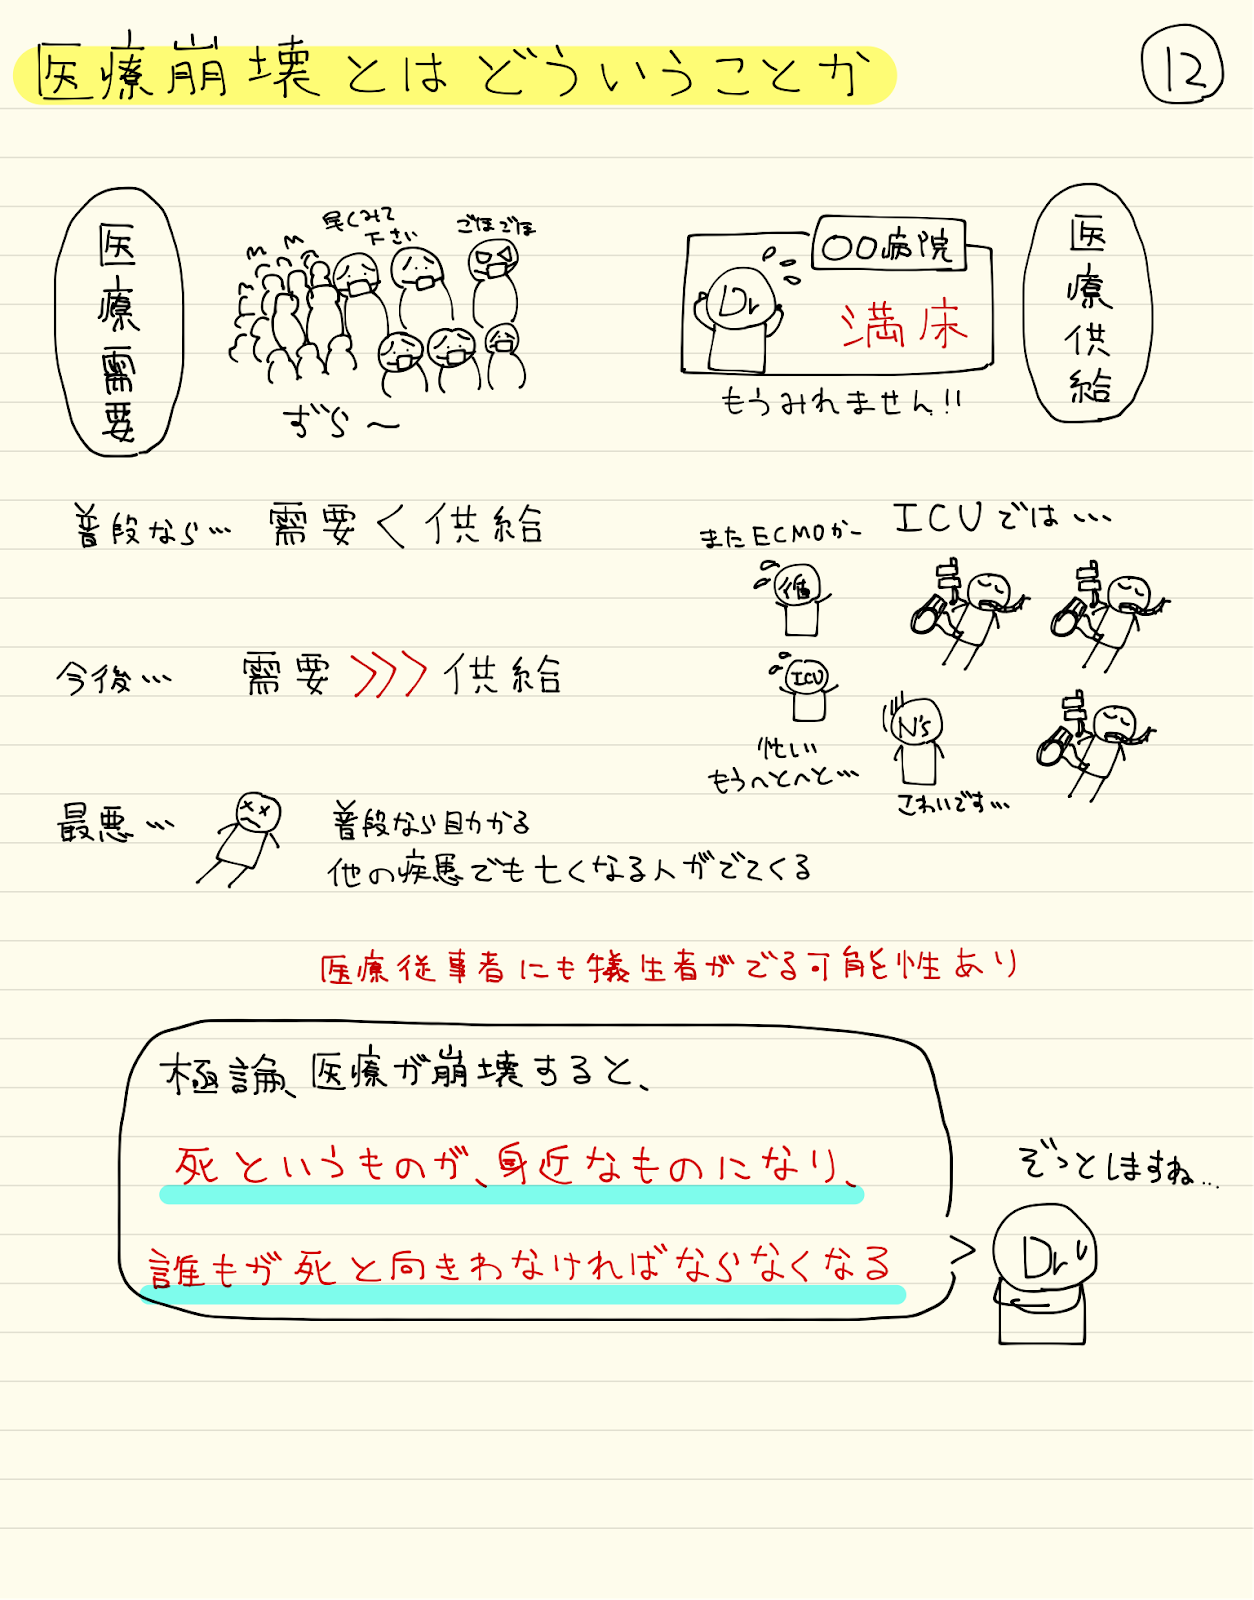 医療崩壊とはどういうことか
12
医療需要
早くみて
下さい
ごほごほ
ずら〜
〇〇病院
Dr
満床
もうみれません!!
医療供給
普段なら… 需要<供給
今後… 需要>>>供給
ICUでは…
またECMOかー
循
ICU
忙しい
もうへとへと…
N's
こわいです…
最悪…
普段なら助かる
他の疾患でも亡くなる人がでてくる
医療従事者にも犠牲者がでる可能性あり
極論、医療が崩壊すると、
死というものが、身近なものになり、
誰もが死と向きわなければならなくなる
ぞっとしますね…
Dr